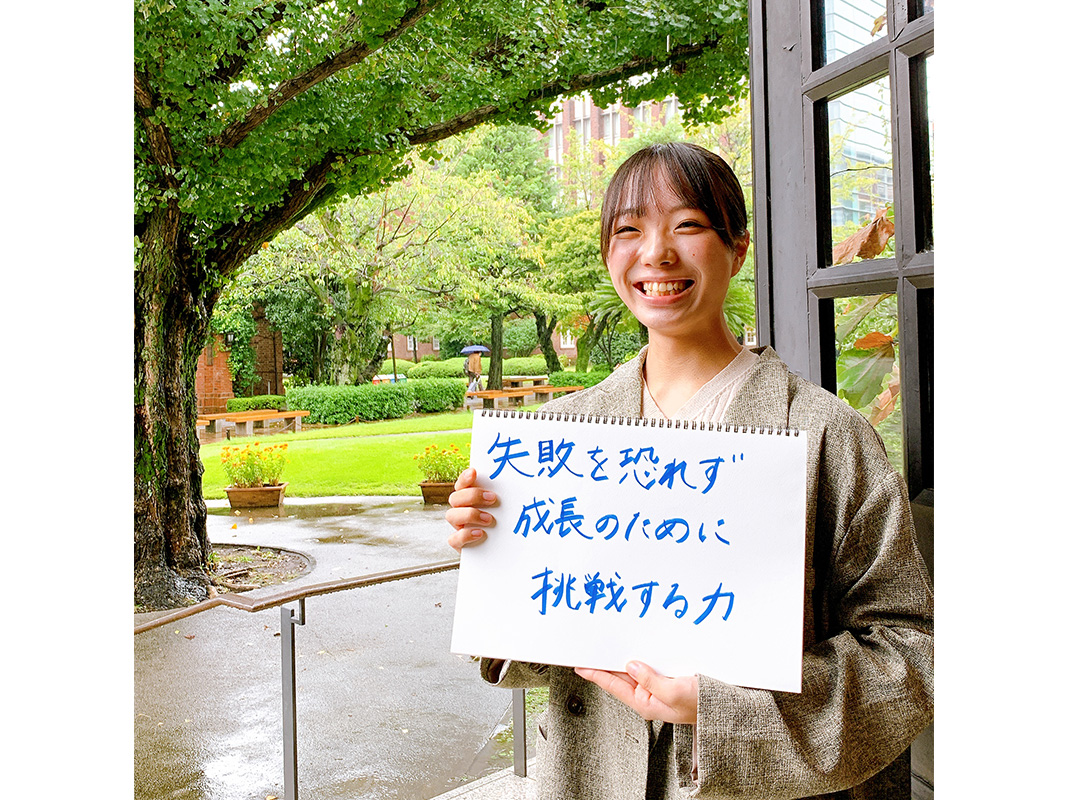 失敗を恐れず
成長のために
挑戦する力